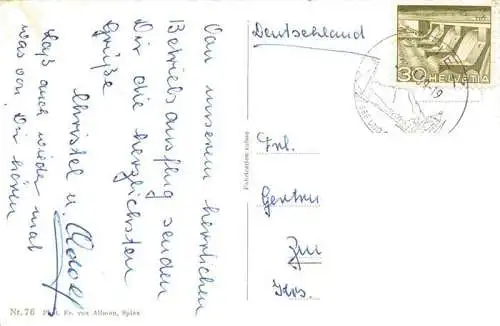 Von unserem herrlichen
Betriebsausflug senden
Dir die herzlichsten
Grüße
Christel u.
Laß auch wieder mal
was von Dir hören
Deutschland
Frl.
Krs.
30
HELVETIA
Fabrication suisse
Nr. 76 Phot. Fr. von Allmen, Spiez